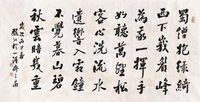 蜀僧抱綠綺
西下峨眉峰
為我一揮手
如聽萬壑松
客心洗流水
遺響入霜鐘
不覺碧山暮
秋雲暗幾重